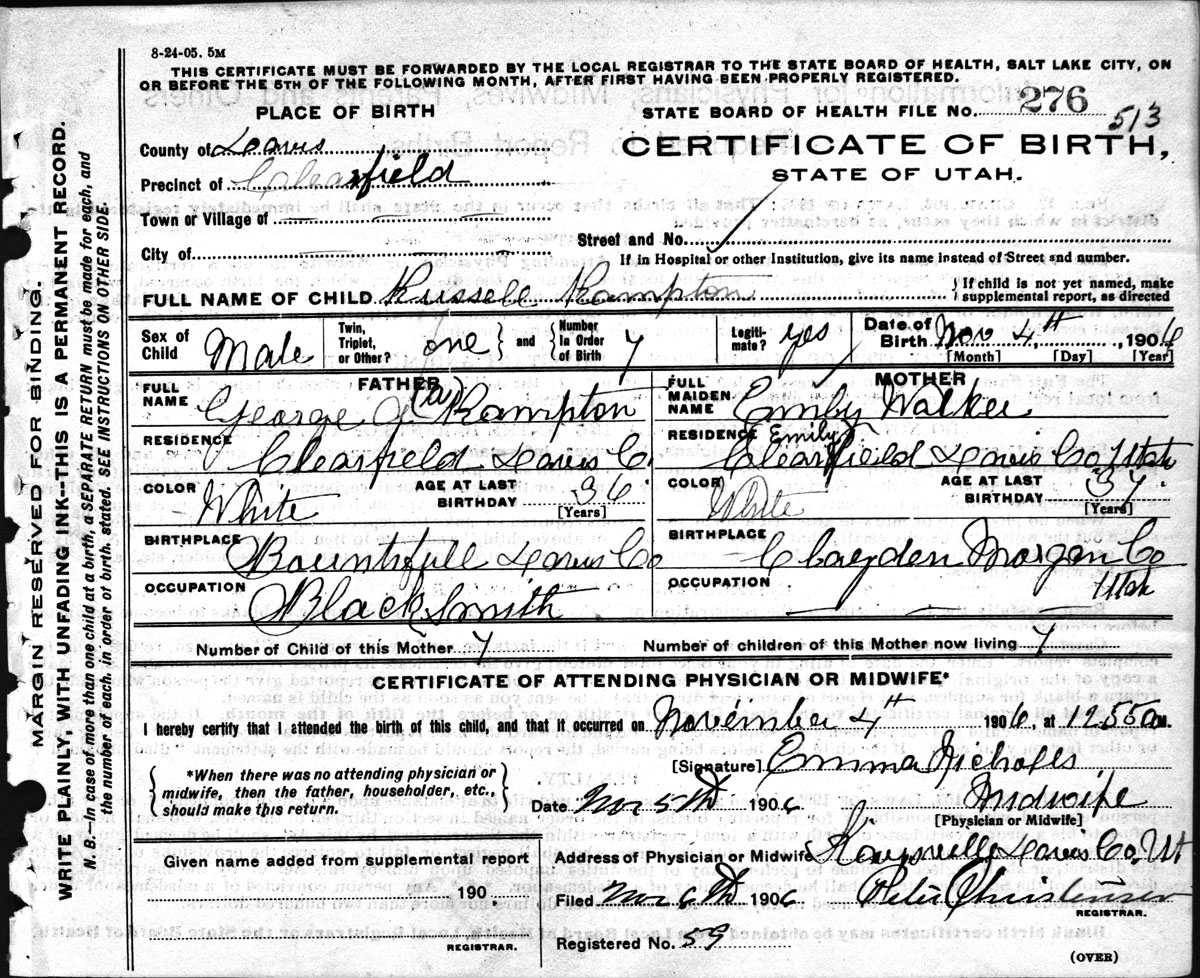 8-24-05. 5M
THIS CERTIFICATE MUST BE FORWARDED BY THE LOCAL REGISTRAR TO THE STATE BOARD OF HEALTH, SALT LAKE CITY, ON
OR BEFORE THE 5TH OF THE FOLLOWING MONTH, AFTER FIRST HAVING BEEN PROPERLY REGISTERED.
PLACE OF BIRTH
STATE BOARD OF HEALTH FILE No. 276 513
County of Davis
CERTIFICATE OF BIRTH,
Precinct of Clearfield
STATE OF UTAH.
Town or Village of
Street and No.
City of
If in Hospital or other Institution, give its name instead of Street and number.
FULL NAME OF CHILD Russell Rampton
If child is not yet named, make
supplemental report, as directed
Sex of Child Male
Twin, Triplet, or Other? one and Number in Order of Birth 7
Legitimate? yes
Date of Birth Nov 4th, 1906
[Month] [Day] [Year]
FATHER
MOTHER
FULL NAME George Rampton
FULL MAIDEN NAME Emily Walker
(Emily)
RESIDENCE Clearfield Davis Co.
RESIDENCE Clearfield Davis Co Utah
COLOR White
AGE AT LAST BIRTHDAY 36
[Years]
COLOR White
AGE AT LAST BIRTHDAY 37
[Years]
BIRTHPLACE Bountifull Davis Co
BIRTHPLACE Croyden Morgan Co
Utah
OCCUPATION Blacksmith
OCCUPATION
Number of Child of this Mother 7
Number of children of this Mother now living 7
CERTIFICATE OF ATTENDING PHYSICIAN OR MIDWIFE*
I hereby certify that I attended the birth of this child, and that it occurred on November 4th 1906, at 12.55 a M.
*When there was no attending physician or
midwife, then the father, householder, etc.,
should make this return.
[Signature] Emma Nicholls
Date Nov 5th 1906
Midwife
[Physician or Midwife]
Given name added from supplemental report
190 .
REGISTRAR.
Address of Physician or Midwife Kaysville Davis Co, Ut
Filed Nov 6th 1906
Peter Christensen
REGISTRAR.
Registered No. 59
(OVER)
MARGIN RESERVED FOR BINDING.
WRITE PLAINLY, WITH UNFADING INK--THIS IS A PERMANENT RECORD.
N. B.—In case of more than one child at a birth, a SEPARATE RETURN must be made for each, and
the number of each, in order of birth, stated. SEE INSTRUCTIONS ON OTHER SIDE.